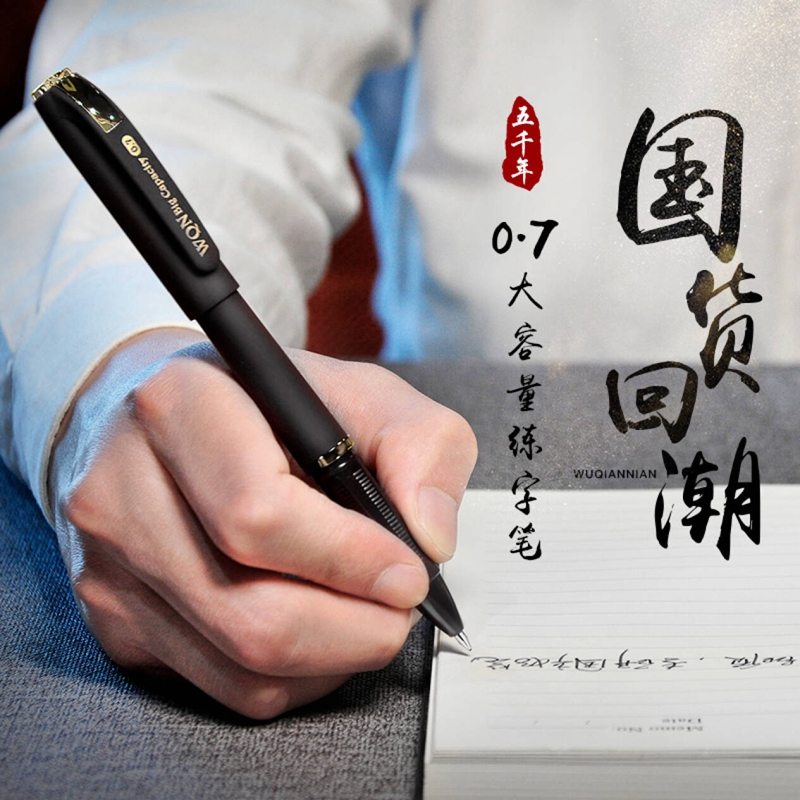 五千年
国货回潮
0.7大容量练字笔
WUQIANNIAN
WQN Big Capacity 0.7
Memo No.
Date